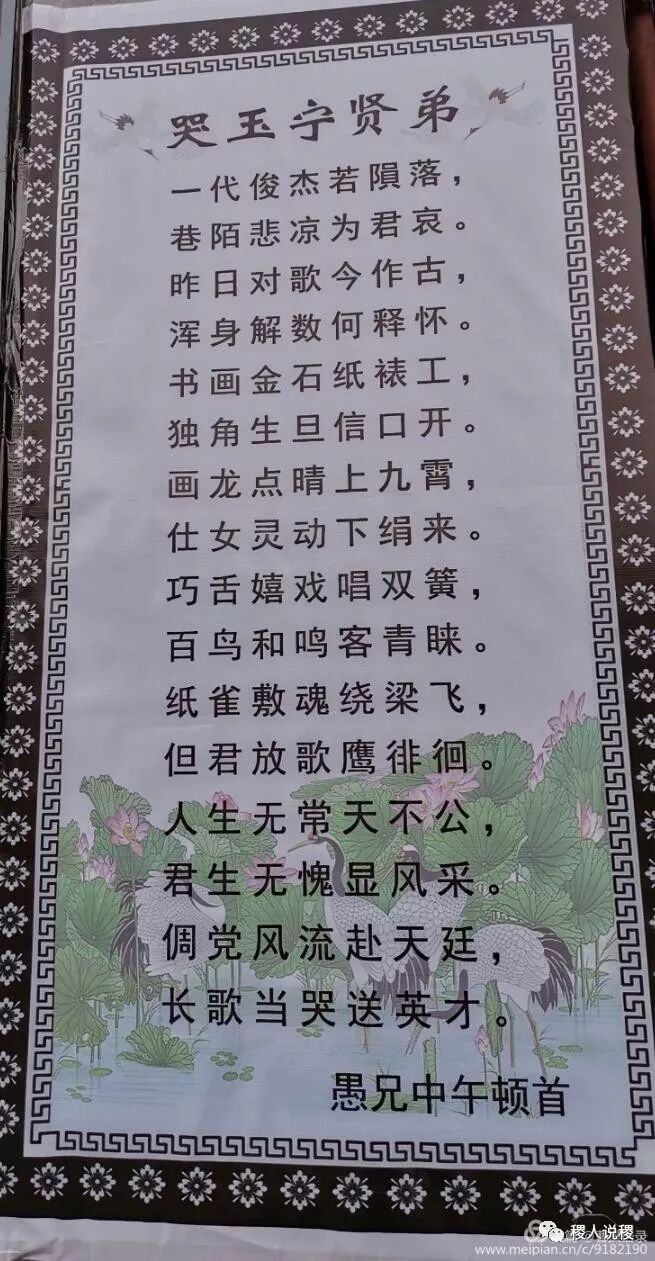 哭玉宁贤弟
一代俊杰若陨落，
巷陌悲凉为君哀。
昨日对歌今作古，
浑身解数何释怀。
书画金石纸裱工，
独角生旦信口开。
画龙点晴上九霄，
仕女灵动下绢来。
巧舌嬉戏唱双簧，
百鸟和鸣客青睐。
纸雀敷魂绕梁飞，
但君放歌鹰徘徊。
人生无常天不公，
君生无愧显风采。
倜党风流赴天廷，
长歌当哭送英才。
愚兄中午顿首
稷人说稷
www.meipian.cn/c/9182190